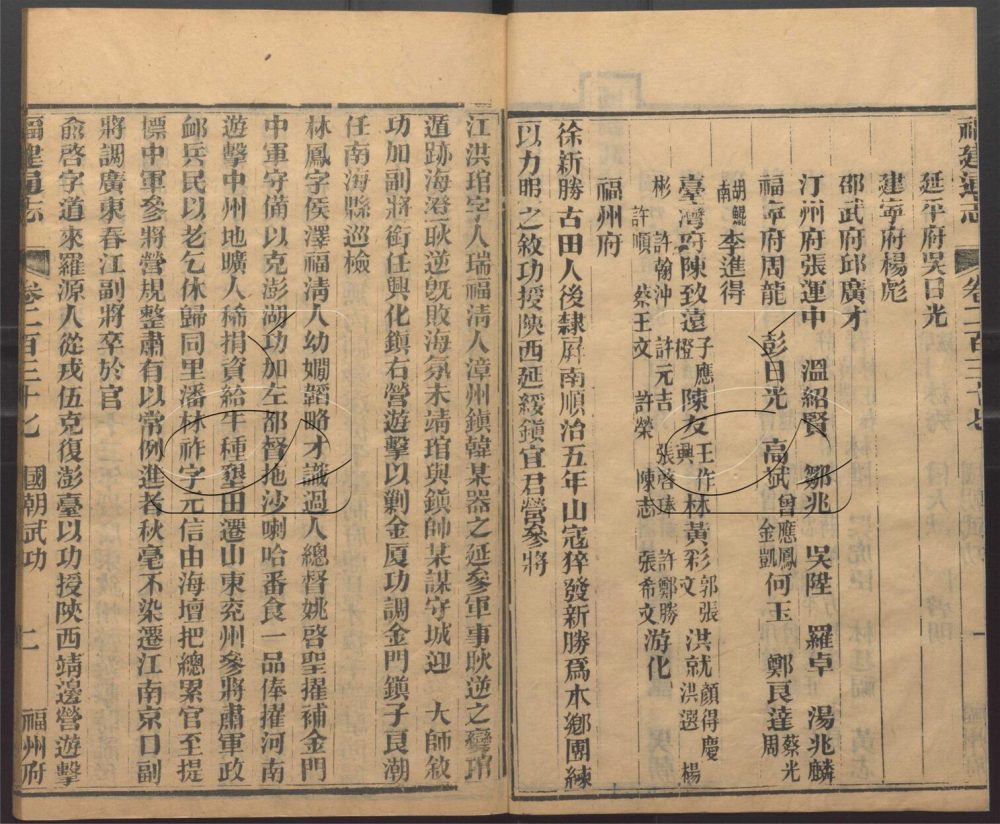 福建通志
卷二百三十七
一
延平府吳日光
建寧府楊彪
邵武府邱廣才
汀州府張運中 溫紹賢 鄒兆 吳陞 羅卓 湯兆麟
福寧府周龍 彭日光 高斌 曾應鳳 金凱 何玉 鄭良達 蔡光 周
胡鯤 南 李進得
臺灣府陳致遠 子應 橙 陳友 王作 興 林黃彩 郭張 文 洪就 顏得慶 洪選 楊
彬 許翰沖 許元吉 張啓臻 許鄭勝 游化
許順 蔡王文 許榮 陳志 張希文
福州府
徐新勝古田人後隸屛南順治五年山寇猝發新勝爲本鄉團練
以力卹之敘功授陝西延綏鎮宜君營參將
江洪琯字人瑞福淸人漳州鎭韓某器之延參軍事耿逆之變琯
遁跡海澄耿逆旣敗海氛未靖琯與鎭帥某謀守城迎 大師敘
功加副將銜任興化鎭右營遊擊以剿金厦功調金門鎭子良潮
任南海縣巡檢
林鳳字侯澤福淸人幼嫺韜略才識過人總督姚啓聖擢補金門
中軍守備以克彭湖功加左都督拖沙喇哈番食一品俸擢河南
遊擊中州地曠人稀捐資給牛種墾田遷山東兖州參將肅軍政
䘏兵民以老乞休歸同里潘林祚字元信由海壇把總累官至提
標中軍參將營規整肅有以常例進者秋毫不染遷江南京口副
將調廣東春江副將卒於官
俞啓字道來羅源人從戎伍克復澎臺以功授陝西靖邊營遊擊
福建通志
卷二百三十七 國朝武功 二 福州府